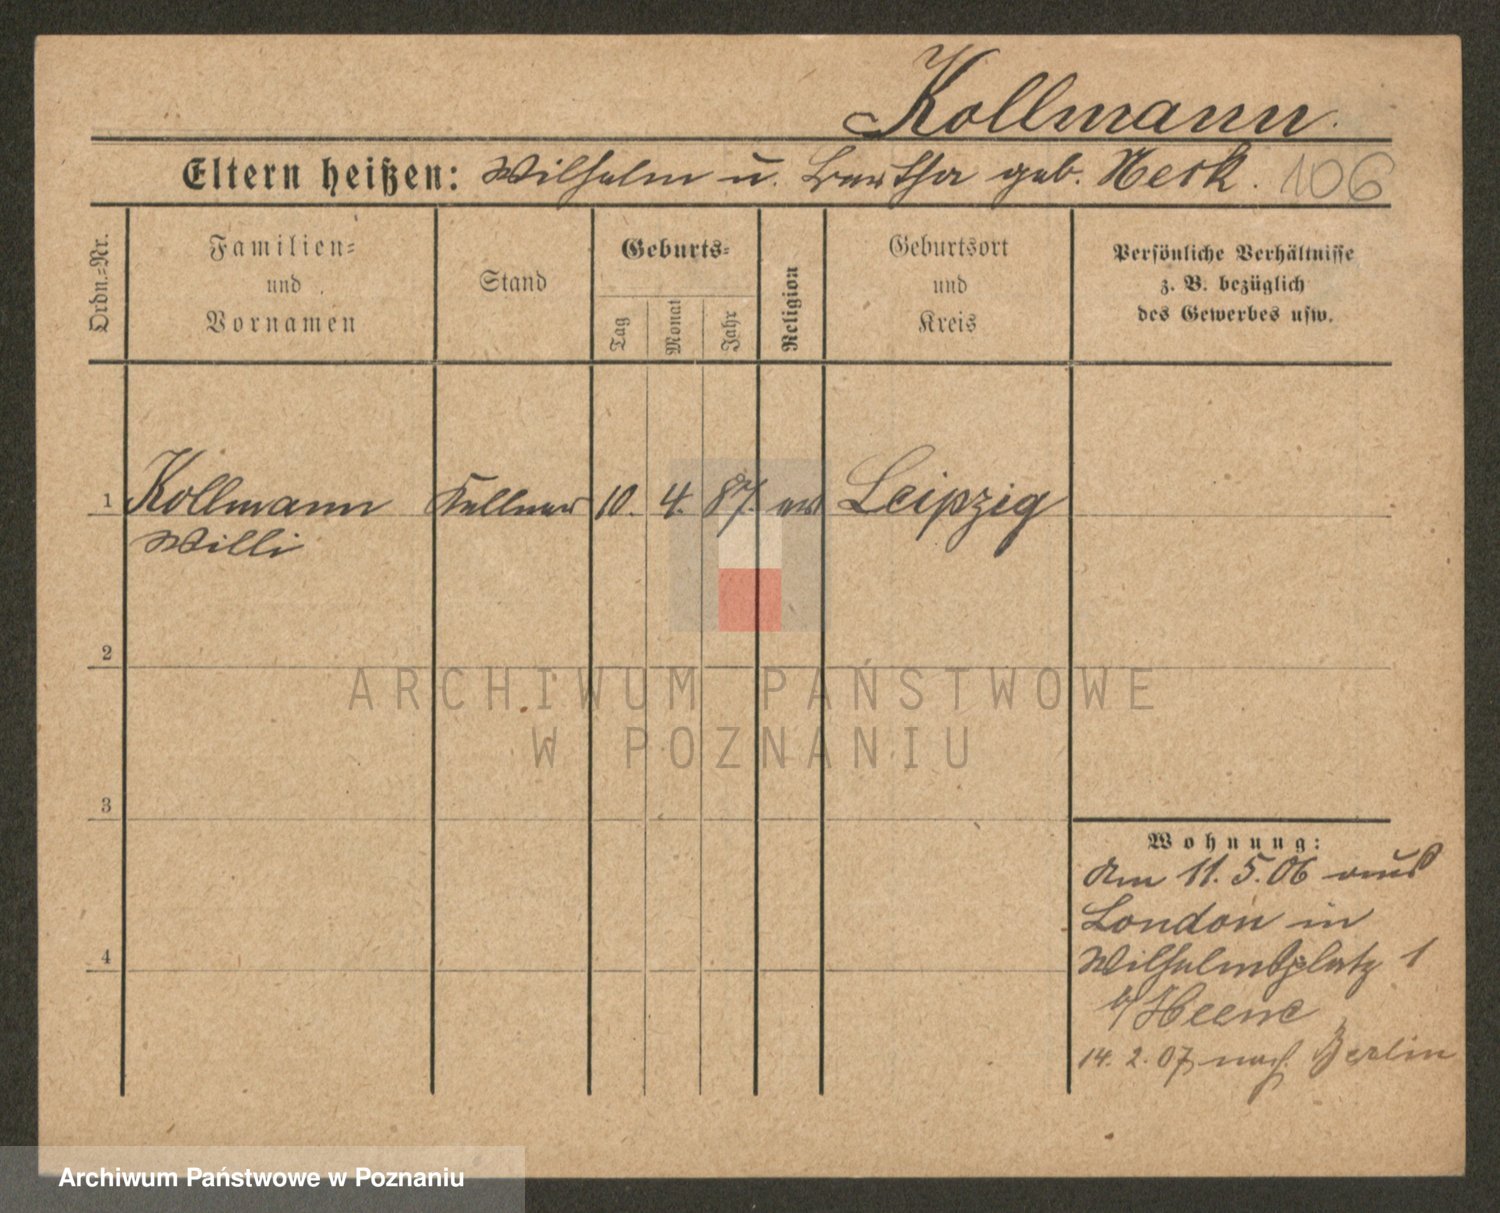 Kollmann.
Eltern heißen: Wilhelm u. Bertha geb. 106
Ordn.=Nr.
Familien=
und
Vornamen
Stand
Geburts=
Tag
Monat
Jahr
Religion
Geburtsort
und
Kreis
Persönliche Verhältnisse
z. B. bezüglich
des Gewerbes usw.
1 Kollmann Kellner 10. 4. 87. ev Leipzig
Willi
2
ARCHIWUM PAŃSTWOWE
W POZNANIU
3
Wohnung:
Am 11. 5. 06 aus
London in
4
Wilhelmsplatz 1
b/
14. 2. 07 nach Berlin
Archiwum Państwowe w Poznaniu